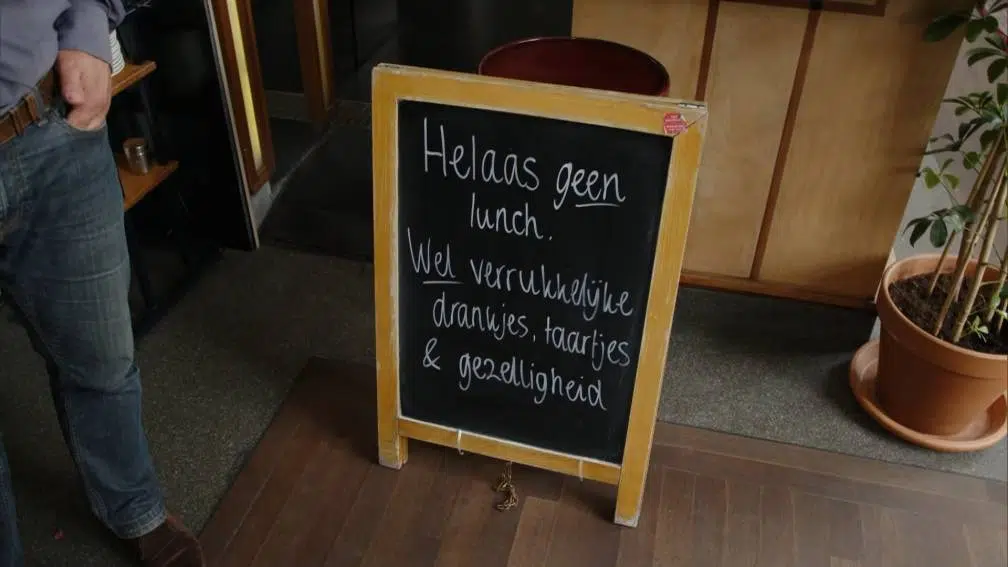 Helaas geen
lunch.
Wel verrukkelijke
drankjes, taartjes
& gezelligheid